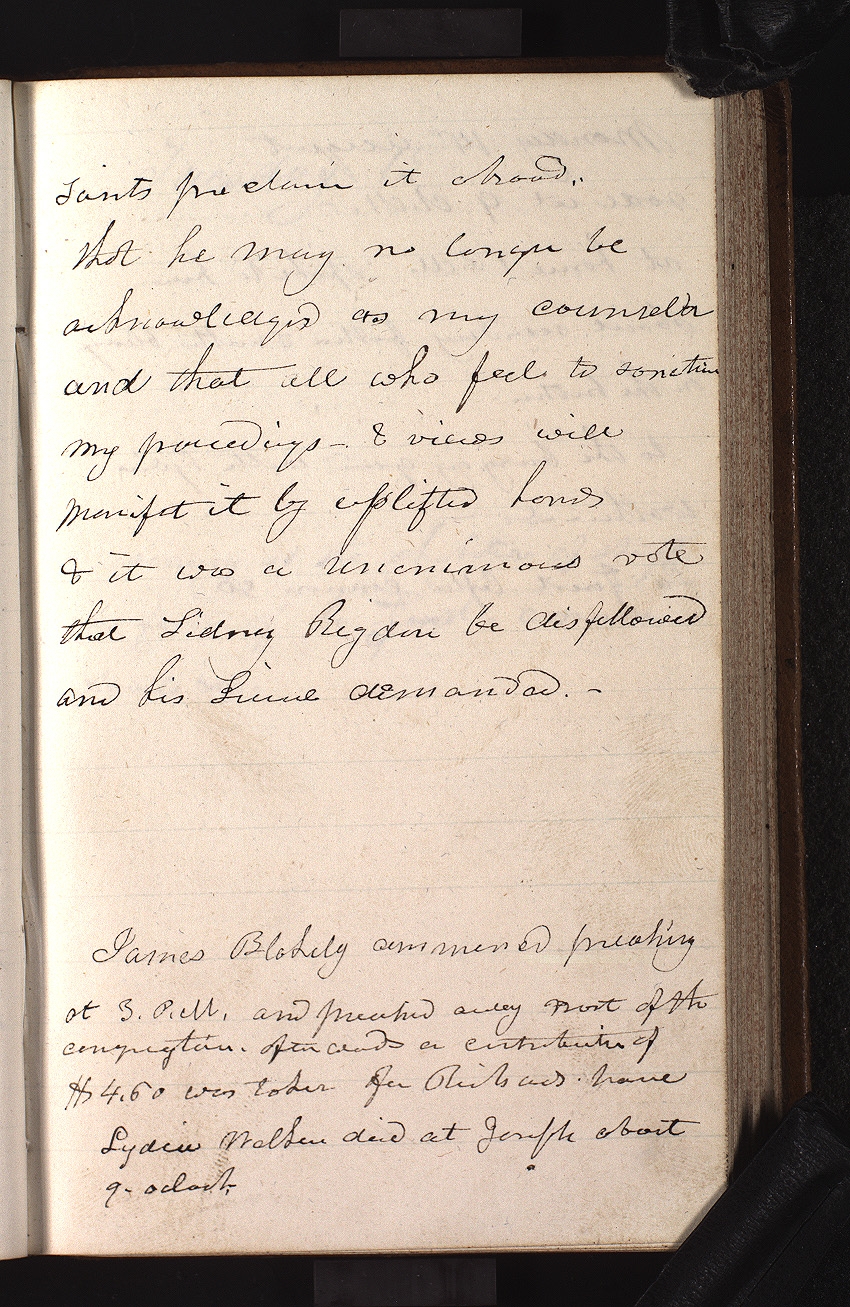 Saints proclaim it abroad.
that he may no longer be
acknowledged as my counseler
and that all who feel to sanction
my proceedings - & views will
manifest it by uplifted hands
& it was a unanimous vote
that Sidney Rigdon be disfellowed
and his License demanded. -
James Blakely commenced preaching
at 3. P.M. and preached away most of the
congregation. afterwards a contribution of
$4.60 was taken for Richards. have
Lydia Walker died at Joseph about
9- oclock.